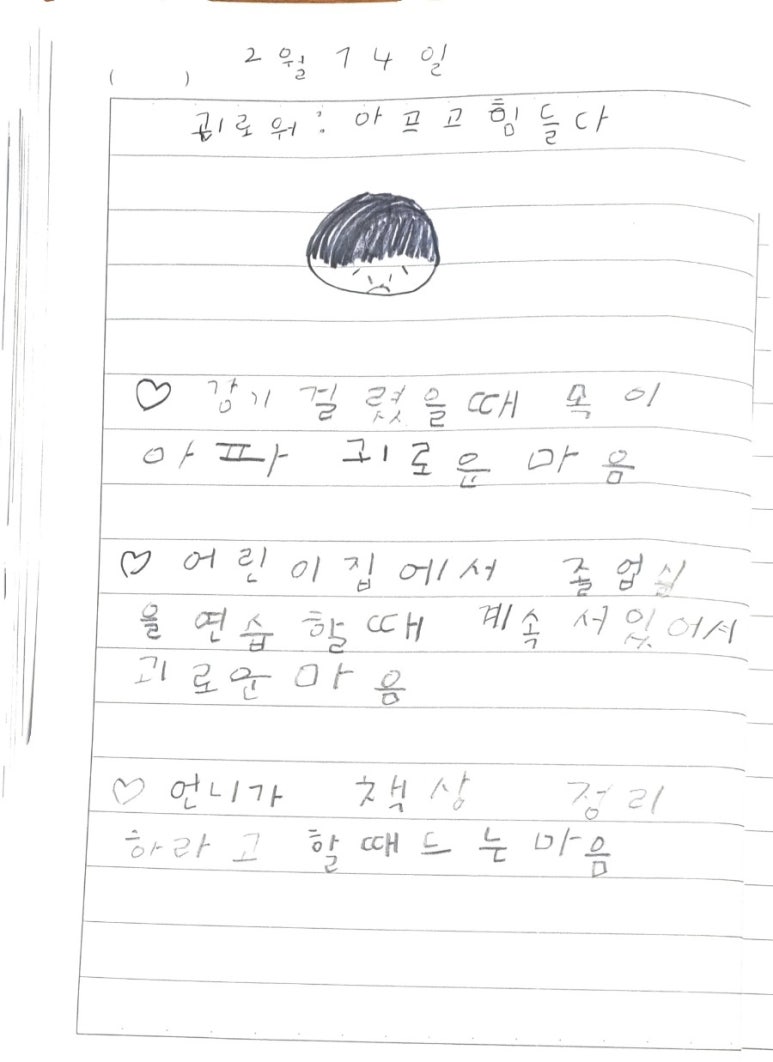 2월 14일
( )
괴로워: 아프고힘들다
♡ 감기 걸렸을때 목이
아파 괴로운 마음
♡ 어린이집에서 졸업식
을 연습 할때 계속 서있어서
괴로운마음
♡ 언니가 책상 정리
하라고 할때드는마음